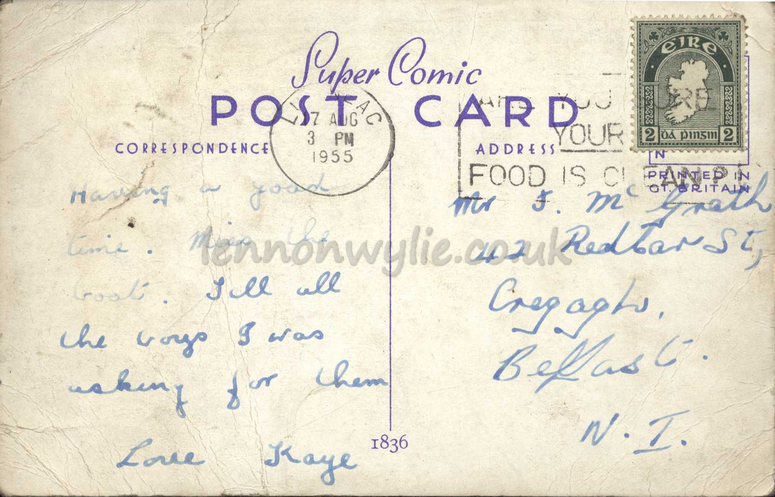 Super Comic
POST CARD
CORRESPONDENCE
ADDRESS
7 AUG
3 PM
1955
ARE YOU SURE
YOUR
FOOD IS CLEAN?
EIRE
2 2
PRINTED IN
GT. BRITAIN
Having a good
time. Miss the
boat. Tell all
the boys I was
asking for them
Love Kaye
Mr J. McGrath
42 Redcar St,
Cregagh,
Belfast.
N. I.
1836
lennonwylie.co.uk